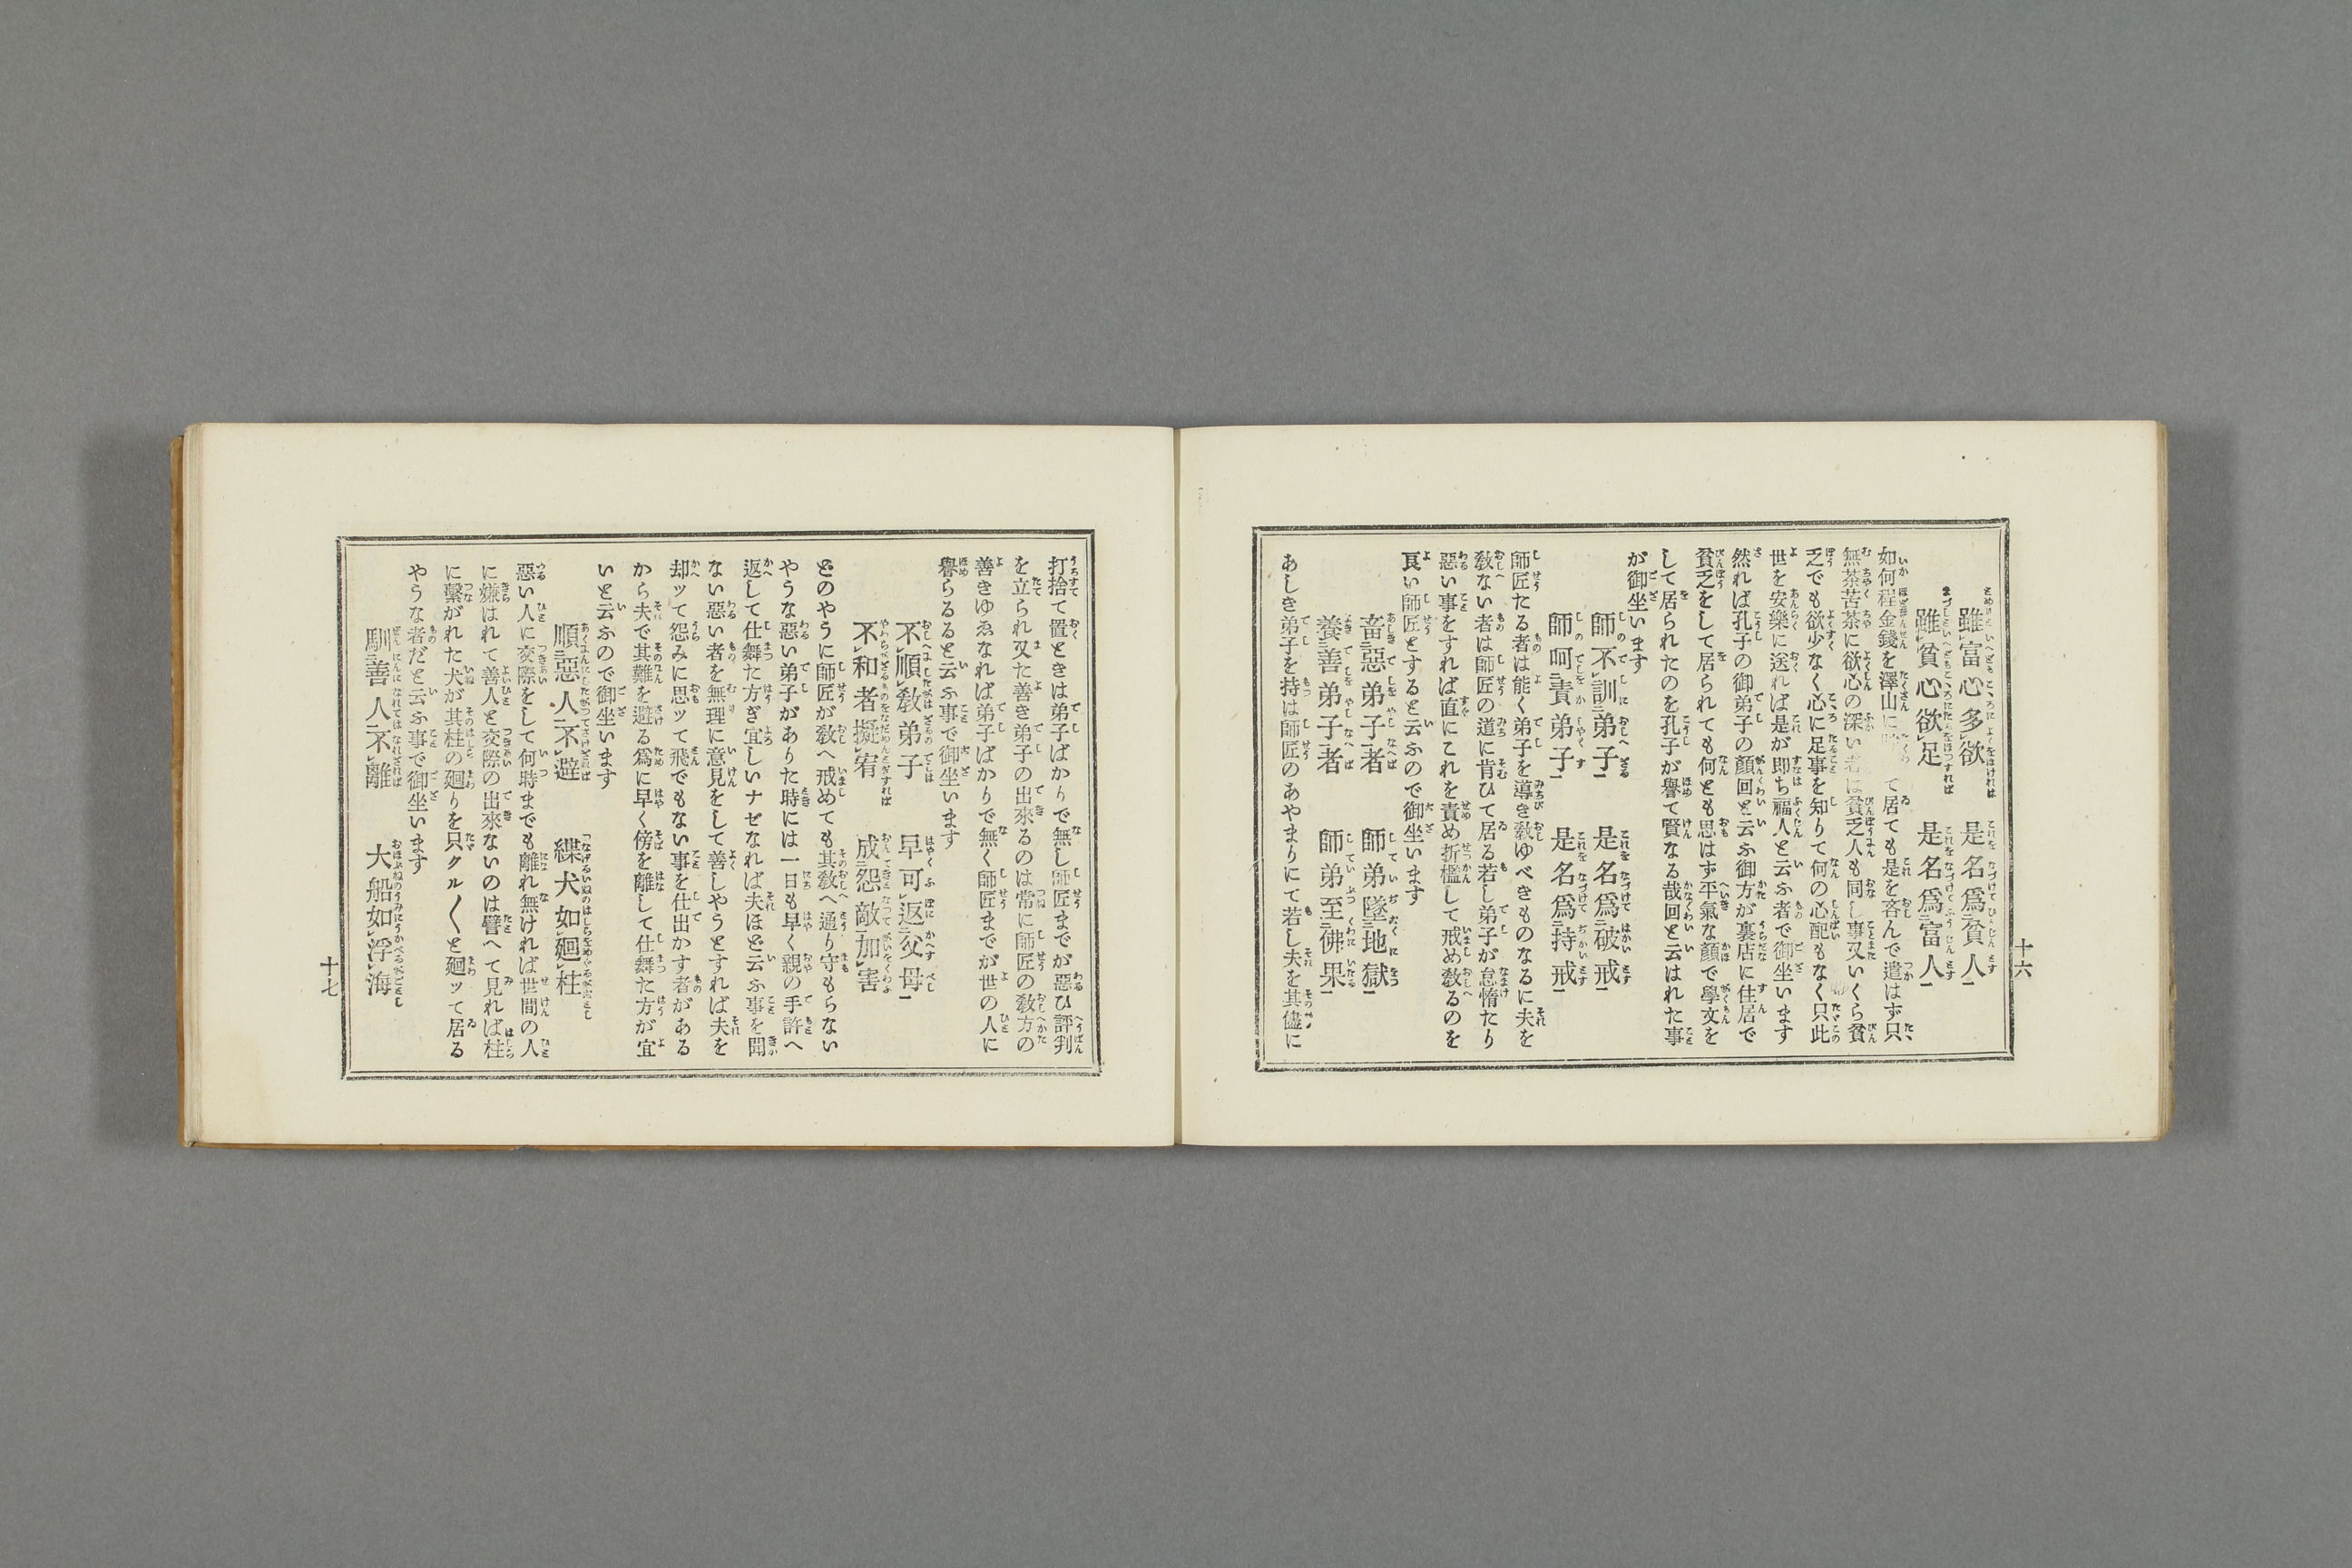 雖レ富心多レ欲　是名爲二貧人一
雖レ貧心欲レ足　是名爲二富人一
如何程金錢を澤山に て居ても是を吝んで遣はず只
無茶苦茶に欲心の深い者は貧乏人も同し事又いくら貧
乏でも欲少なく心に足事を知りて何の心配もなく只此
世を安樂に送れば是が即ち福人と云ふ者で御坐います
然れば孔子の御弟子の顏回と云ふ御方が裏店に住居で
貧乏をして居られても何とも思はず平氣な顏で學文を
して居られたのを孔子が譽て賢なる哉回と云はれた事
が御坐います
師不レ訓二弟子一　是名爲二破戒一
師呵二責弟子一　是名爲二持戒一
師匠たる者は能く弟子を導き敎ゆべきものなるに夫を
敎ない者は師匠の道に肯ひて居る若し弟子が怠惰たり
惡い事をすれば直にこれを責め折檻して戒め敎るのを
良い師匠とすると云ふので御坐います
畜二惡弟子一者　師弟墜二地獄一
養二善弟子一者　師弟至二佛果一
あしき弟子を持は師匠のあやまりにて若し夫を其儘に
十六
打捨て置ときは弟子ばかりで無し師匠までが惡ひ評判
を立られ又た善き弟子の出來るのは常に師匠の敎方の
善きゆゑなれば弟子ばかりで無く師匠までが世の人に
譽らるると云ふ事で御坐います
不レ順レ敎弟子　早可レ返二父母一
不レ和者擬レ宥　成二怨敵一加レ害
どのやうに師匠が敎へ戒めても其敎へ通り守もらない
やうな惡い弟子がありた時には一日も早く親の手許へ
返して仕舞た方ぎ宜しいナゼなれば夫ほど云ふ事を聞
ない惡い者を無理に意見をして善しやうとすれば夫を
却ッて怨みに思ッて飛でもない事を仕出かす者がある
から夫で其難を避る爲に早く傍を離して仕舞た方が宜
いと云ふので御坐います
順二惡人一不レ避　緤犬如レ廻レ柱
馴二善人一不レ離　大船如レ浮レ海
惡い人に交際をして何時までも離れ無ければ世間の人
に嫌はれて善人と交際の出來ないのは譬へて見れば柱
に繫がれた犬が其柱の廻りを只クル〱と廻ッて居る
やうな者だと云ふ事で御坐います
十七